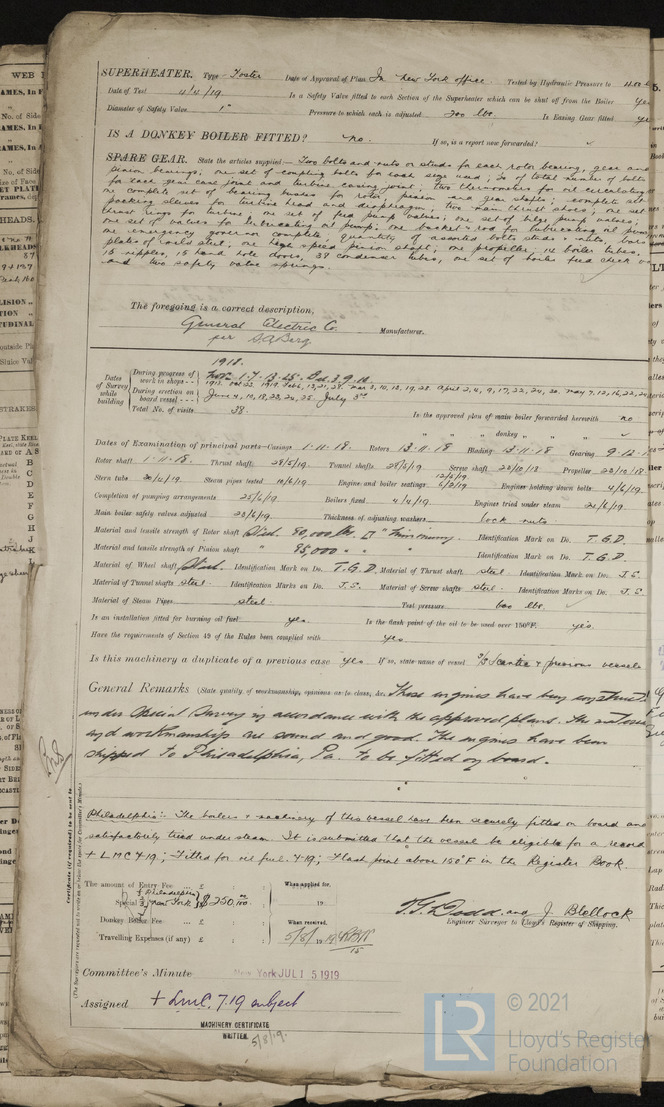 SUPERHEATER. Type Foster Date of Approval of Plan In New York office Tested by Hydraulic Pressure to 400
Date of Test 11/4/19. Is a Safety Valve fitted to each Section of the Superheater which can be shut off from the Boiler Yes
Diameter of Safety Valve 1" Pressure to which each is adjusted 200 lbs. Is Easing Gear fitted
IS A DONKEY BOILER FITTED? no. If so, is a report now forwarded?
SPARE GEAR. State the articles supplied:— Two bolts and nuts or studs for each rotor bearing, gear and
pinion bearings; one set of coupling bolts for each size used; 1/20 of total number of bolts
for each gear case joint and turbine casing joint; two thermometers for oil circulating
one complete set of bearing bushes for rotor, pinion and gear shafts; complete set
packing sleeves for turbine head and diaphragm; two main thrust shoes; one set
thrust rings for turbine; one set of feed pump valves; one set of bilge pump valves;
one set of valves for lubricating oil pump; one bucket & rod for lubricating oil pump
one emergency governor complete; quantity of assorted bolts studs & nuts, bars
plates of mild steel; one high speed pinion shaft; one propeller; 14 boiler tubes.
15 nipples, 15 hand hole doors, 38 condenser tubes, one set of boiler feed check
and two safety valve springs.
The foregoing is a correct description,
General Electric Co.
per Manufacturer.
1918.
Dates of Survey while building
During progress of work in shops - - Nov. 1. 7. 13. 25. Dec. 2. 9. 10
During erection on board vessel - - - June 4, 10, 18, 23, 24, 25 July 3rd
Total No. of visits 38. Is the approved plan of main boiler forwarded herewith no
" " " donkey " "
Dates of Examination of principal parts—Casings 1-11-18. Rotors 13-11-18 Blading 13-11-18 Gearing 9-12-
Rotor shaft 1-11-18. Thrust shaft 28/5/19. Tunnel shafts 28/5/19 Screw shaft 23/10/18 Propeller 23/10/18
Stern tube 30/4/19. Steam pipes tested 10/6/19 Engine and boiler seatings 12/2/19 Engines holding down bolts 4/6/19
Completion of pumping arrangements 25/6/19 Boilers fixed 4/4/19 Engines tried under steam 25/6/19
Main boiler safety valves adjusted 23/6/19 Thickness of adjusting washers lock nuts
Material and tensile strength of Rotor shaft Steel. 80,000 lbs. □" minimum Identification Mark on Do. T.G.D.
Material and tensile strength of Pinion shaft " 95,000 " " " Identification Mark on Do. T.G.D.
Material of Wheel shaft Steel. Identification Mark on Do. T.G.D. Material of Thrust shaft steel Identification Mark on Do. J.S.
Material of Tunnel shafts steel. Identification Marks on Do. J.S. Material of Screw shafts steel. Identification Marks on Do. J.S.
Material of Steam Pipes steel. Test pressure 600 lbs.
Is an installation fitted for burning oil fuel yes Is the flash point of the oil to be used over 150°F. yes.
Have the requirements of Section 49 of the Rules been complied with yes
Is this machinery a duplicate of a previous case yes If so, state name of vessel S/S & previous vessels
General Remarks (State quality of workmanship, opinions as to class, &c. These engines have been constructed
under Special Survey in accordance with the approved plans. The material
and workmanship are sound and good. The engines have been
shipped to Philadelphia, Pa. to be fitted on board.
Philadelphia:- The boilers & machinery of this vessel have been securely fitted on board and
satisfactorily tried under steam. It is submitted that the vessel be eligible for a record
+ LMC 7.19; Fitted for oil fuel 7.19; Flash point above 150°F in the Register Book.
Certificate (if required) to be sent to
(The Surveyors are requested not to write on or below the space for Committee's Minute.)
The amount of Entry Fee ... £ : : When applied for,
Special Philadelphia New York $250.00 19
Donkey Boiler Fee ... £ : : When received,
Travelling Expenses (if any) £ : : 5/8/1919
T.G. Dodd. and J. Blellock
Engineer Surveyor to Lloyd's Register of Shipping.
Committee's Minute New York JUL 15 1919
Assigned + LMC. 7.19 subject
MACHINERY CERTIFICATE
WRITTEN. 5/8/19.
LR © 2021
Lloyd's Register
Foundation